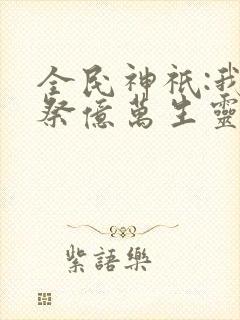 全民神祇:我
祭億萬生靈
紫語樂